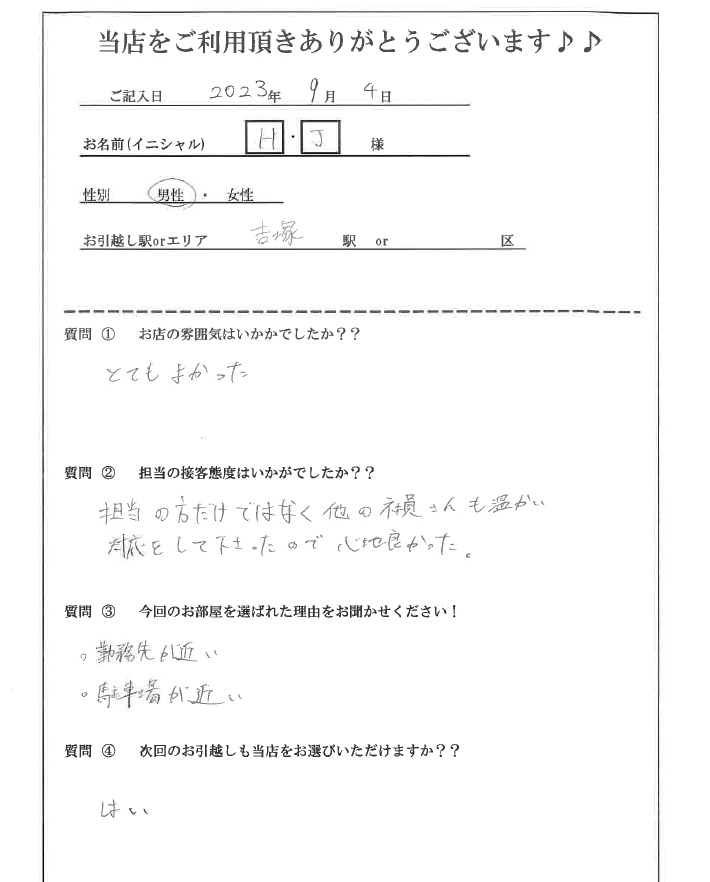 当店をご利用頂きありがとうございます♪♪
ご記入日 2023年 9月 4日
お名前(イニシャル) H・J 様
性別 男性 ・ 女性
お引越し駅orエリア 吉塚 駅 or 区
質問 ① お店の雰囲気はいかかでしたか??
とてもよかった
質問 ② 担当の接客態度はいかがでしたか??
担当の方だけではなく他の社員さんも温かい
対応をして下さったので心地良かった。
質問 ③ 今回のお部屋を選ばれた理由をお聞かせください!
。勤務先が近い
。駐車場が近い
質問 ④ 次回のお引越しも当店をお選びいただけますか??
はい